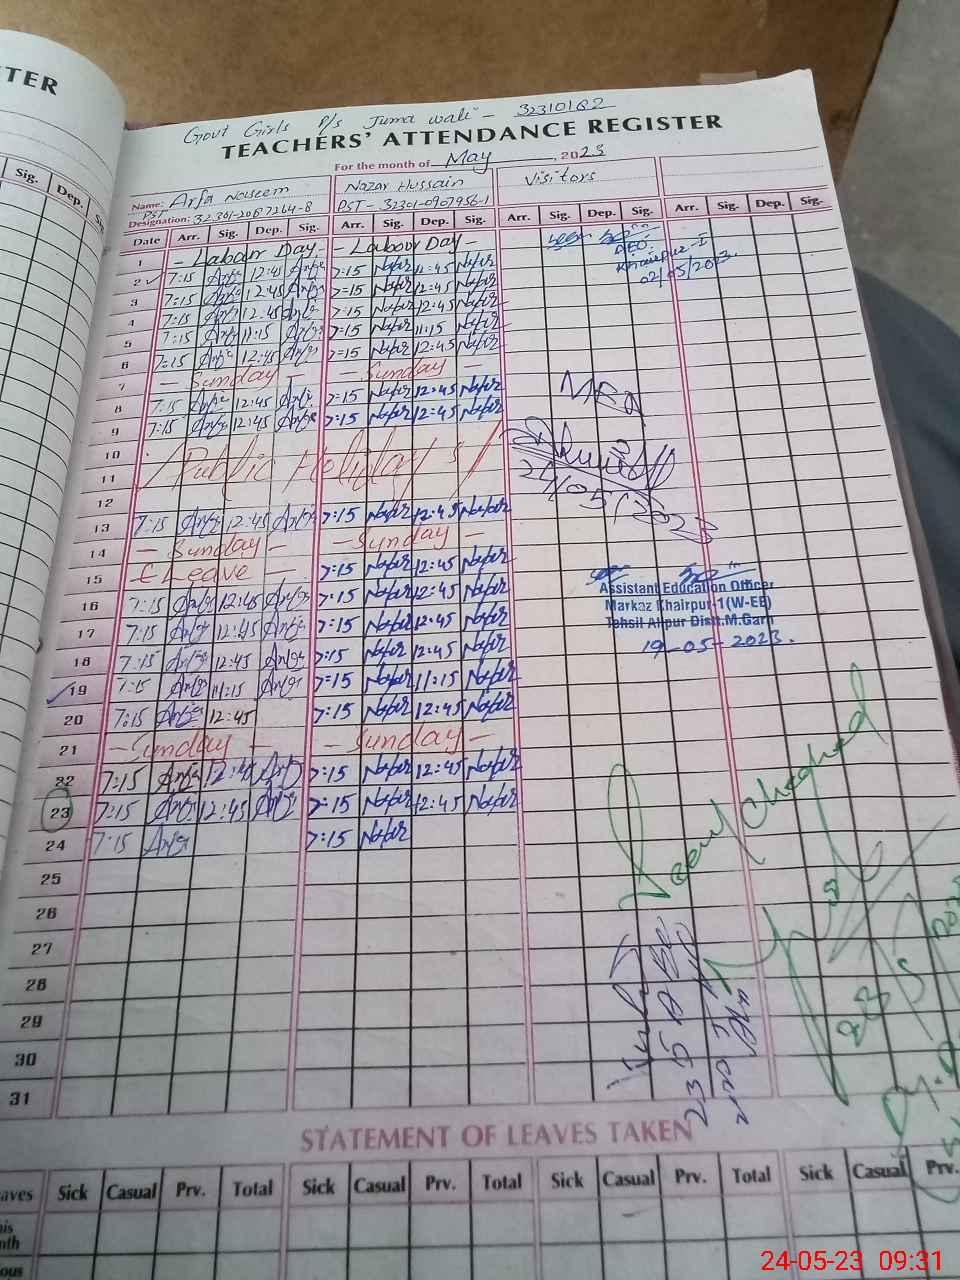 TER
Sig.
Dep.
Govt Girls P/s Juma wali - 32310182
TEACHERS' ATTENDANCE REGISTER
For the month of May, 2023
Name: Arfa Naseem Nazar Hussain Visitors
Designation: PST PST - 32301-0907956-1
Date Arr. Sig. Dep. Sig. Arr. Sig. Dep. Sig. Arr. Sig. Dep. Sig. Arr. Sig. Dep. Sig.
1 - Labour Day - - Labour Day -
2 7:15 Arfa 12:45 Arfa 7:15 Nazar 11:45 Nazar
3 7:15 Arfa 12:45 Arfa 7:15 Nazar 12:45 Nazar
4 7:15 Arfa 12:45 Arfa 7:15 Nazar 12:45 Nazar
5 7:15 Arfa 11:15 Arfa 7:15 Nazar 11:15 Nazar
6 7:15 Arfa 12:45 Arfa 7:15 Nazar 12:45 Nazar
7 - Sunday - - Sunday -
8 7:15 Arfa 12:45 Arfa 7:15 Nazar 12:45 Nazar
9 7:15 Arfa 12:45 Arfa 7:15 Nazar 12:45 Nazar
10
11 Public Holiday's
12
13 7:15 Arfa 12:45 Arfa 7:15 Nazar 12:45 Nazar
14 - Sunday - - Sunday -
15 - Leave - 7:15 Nazar 12:45 Nazar
16 7:15 Arfa 12:45 Arfa 7:15 Nazar 12:45 Nazar
17 7:15 Arfa 12:45 Arfa 7:15 Nazar 12:45 Nazar
18 7:15 Arfa 12:45 Arfa 7:15 Nazar 12:45 Nazar
19 7:15 Arfa 11:15 Arfa 7:15 Nazar 11:15 Nazar
20 7:15 Arfa 12:45 7:15 Nazar 12:45 Nazar
21 - Sunday - - Sunday -
22 7:15 Arfa 12:45 Arfa 7:15 Nazar 12:45 Nazar
23 7:15 Arfa 12:45 Arfa 7:15 Nazar 12:45 Nazar
24 7:15 Arfa 7:15 Nazar
25
26
27
28
29
30
31
seen
AEO
Khairpur-I
02/05/2023.
MEA
24/05/2023
Assistant Education Officer
Markaz Khairpur-1(W-EE)
Tehsil Alipur Distt.M.Garh
19-05-2023.
STATEMENT OF LEAVES TAKEN
Sick Casual Prv. Total Sick Casual Prv. Total Sick Casual Prv. Total Sick Casual Prv.
24-05-23 09:31